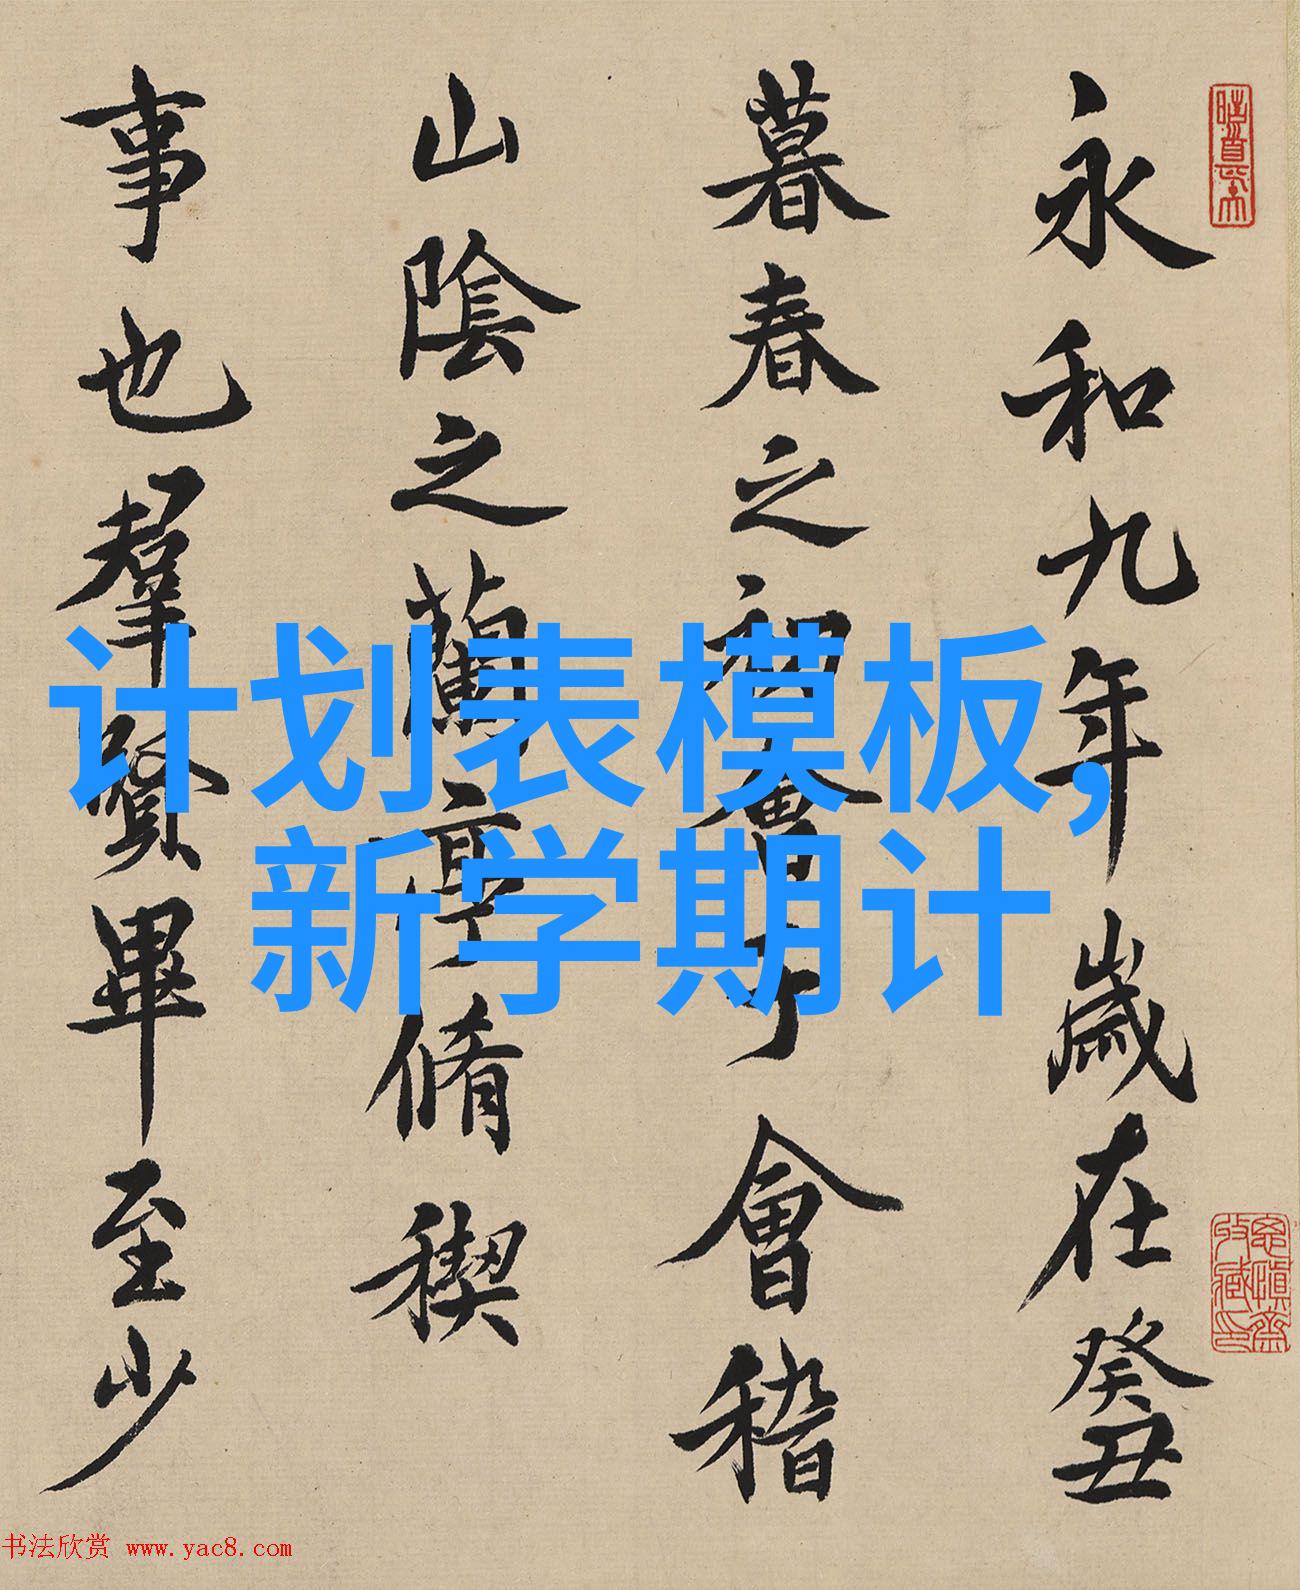 永和九年歲在癸丑
暮春之初會于會稽
山陰之蘭亭脩稧
事也羣賢畢至少
计划表模板,
新学期计
书法欣赏 www.yac8.com